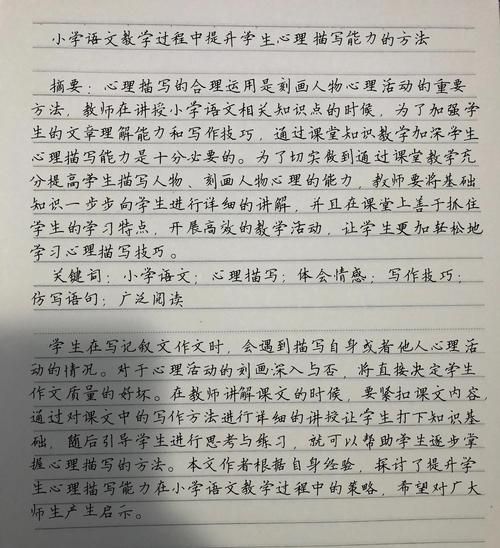 小学语文教学过程中提升学生心理描写能力的方法
摘要：心理描写的合理运用是刻画人物心理活动的重要
方法，教师在讲授小学语文相关知识点的时候，为了加强学
生的文章理解能力和写作技巧，通过课堂知识教学加深学生
心理描写能力是十分必要的。为了切实做到通过课堂教学充
分提高学生描写人物、刻画人物心理的能力，教师要将基础
知识一步步向学生进行详细的讲解，并且在课堂上善于抓住
学生的学习特点，开展高效的教学活动，让学生更加轻松地
学习心理描写技巧。
关键词：小学语文；心理描写；体会情感；写作技巧；
仿写语句；广泛阅读
学生在写记叙文作文时，会遇到描写自身或者他人心理活
动的情况。对于心理活动的刻画深入与否，将直接决定学生
作文质量的好坏。在教师讲解课文的时候，要紧扣课文内容，
通过对课文中的写作方法进行详细的讲授让学生打下知识基
础，随后引导学生进行思考与练习，就可以帮助学生逐步掌
握心理描写的方法。本文作者根据自身经验，探讨了提升学
生心理描写能力在小学语文教学过程中的策略，希望对广大
师生产生启示。